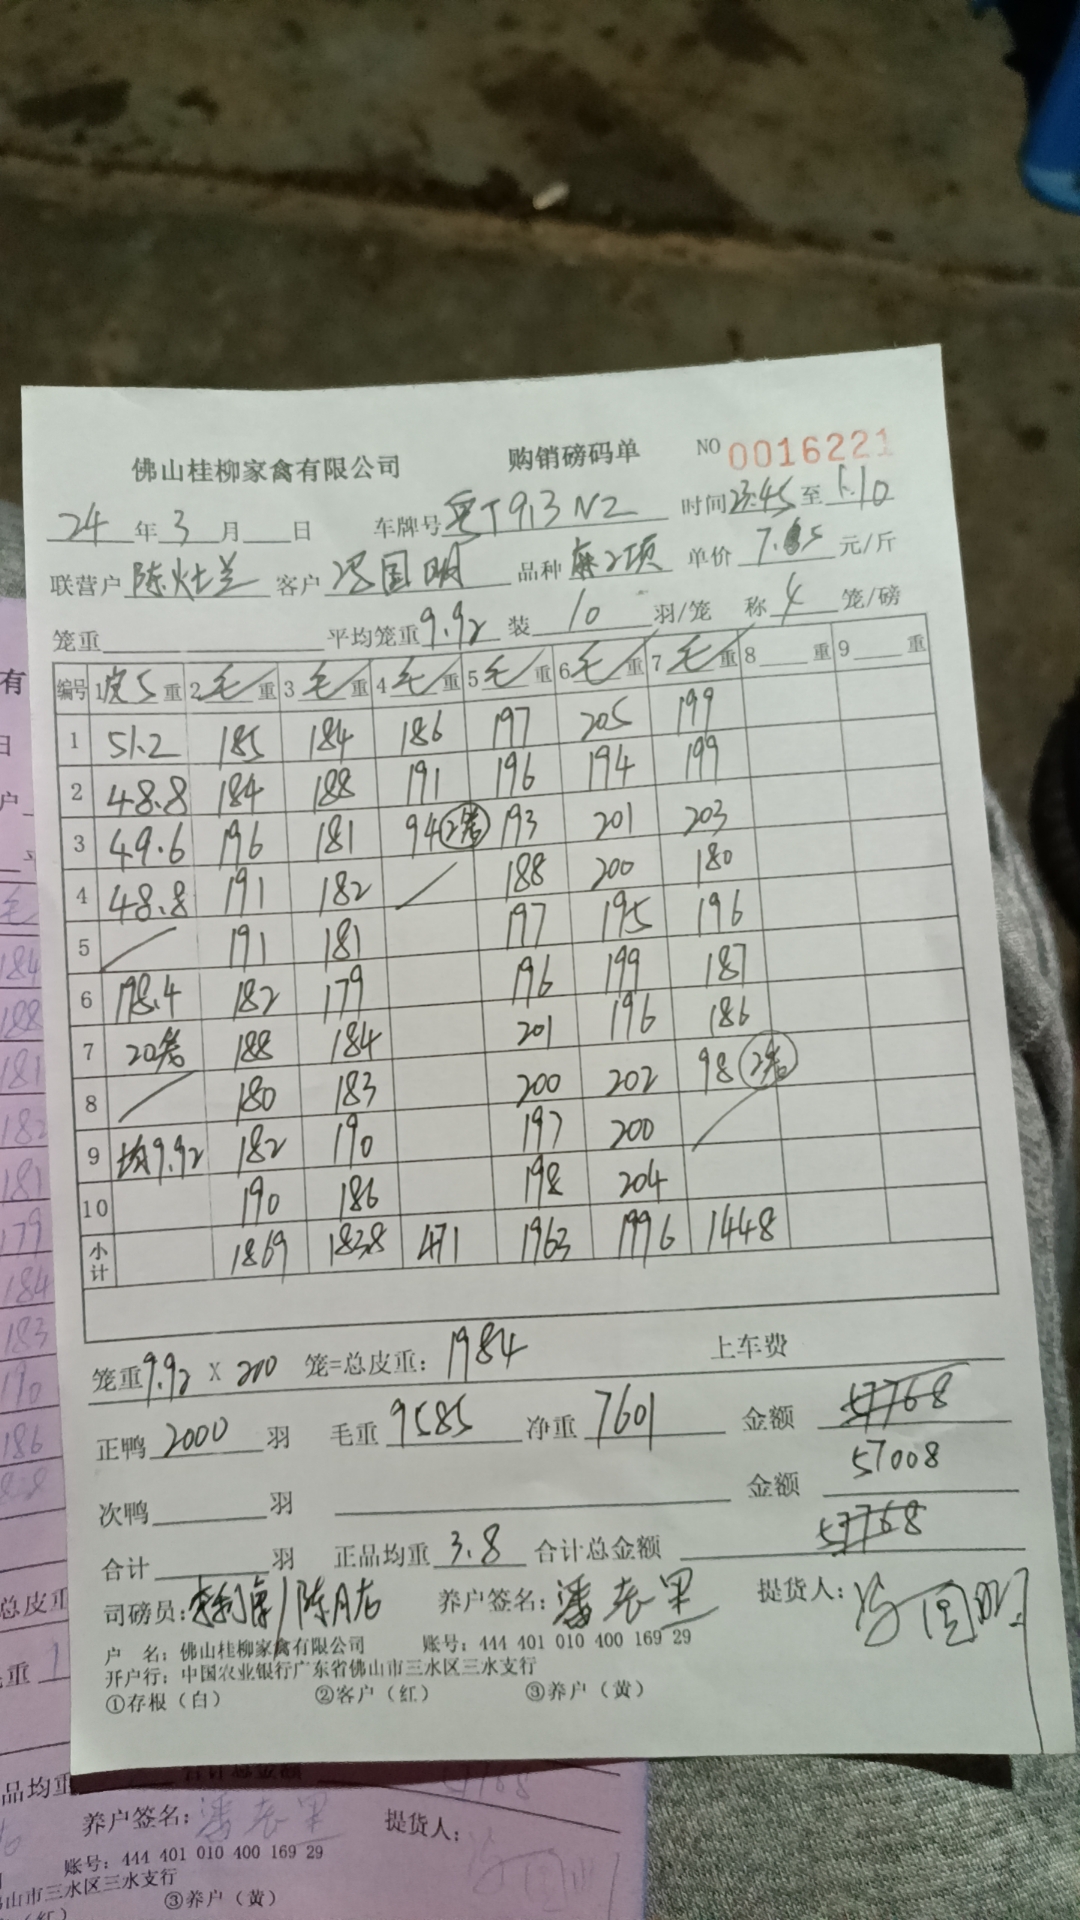 佛山桂柳家禽有限公司 购销磅码单 NO 0016221
24年3月 日 车牌号粤T913N2 时间23:45至1:10
联营户陈灶兰 客户冯国明 品种麻2项 单价7. 5元/斤
笼重 平均笼重9.92 装10羽/笼 称4笼/磅
编号 1皮5重 2毛重 3毛重 4毛重 5毛重 6毛重 7毛重 8 重 9 重
1 51.2 185 184 186 197 205 199
2 48.8 184 188 191 196 194 199
3 49.6 196 181 94(2笼) 193 201 203
4 48.8 191 182 188 200 180
5 191 181 197 195 196
6 198.4 182 179 196 199 187
7 20笼 188 184 201 196 186
8 180 183 200 202 98(2笼)
9 均9.92 182 190 197 200
10 190 186 198 204
小计 1869 1838 471 1963 1996 1448
笼重9.92 X 200 笼=总皮重: 1984 上车费
正鸭2000羽 毛重9585 净重7601 金额57768
57008
次鸭 羽 金额
合计 羽 正品均重3.8 合计总金额 57768
司磅员: 养户签名:潘 提货人:冯国明
户 名: 佛山桂柳家禽有限公司 账号: 444 401 010 400 169 29
开户行: 中国农业银行广东省佛山市三水区三水支行
①存根（白） ②客户（红） ③养户（黄）
有
日
户
毛
184
188
181
182
181
179
184
183
190
186
总皮重
重 1
品均重 合计总金额
养户签名:潘 提货人:
账号: 444 401 010 400 169 29
佛山市三水区三水支行
（红） ③养户（黄）